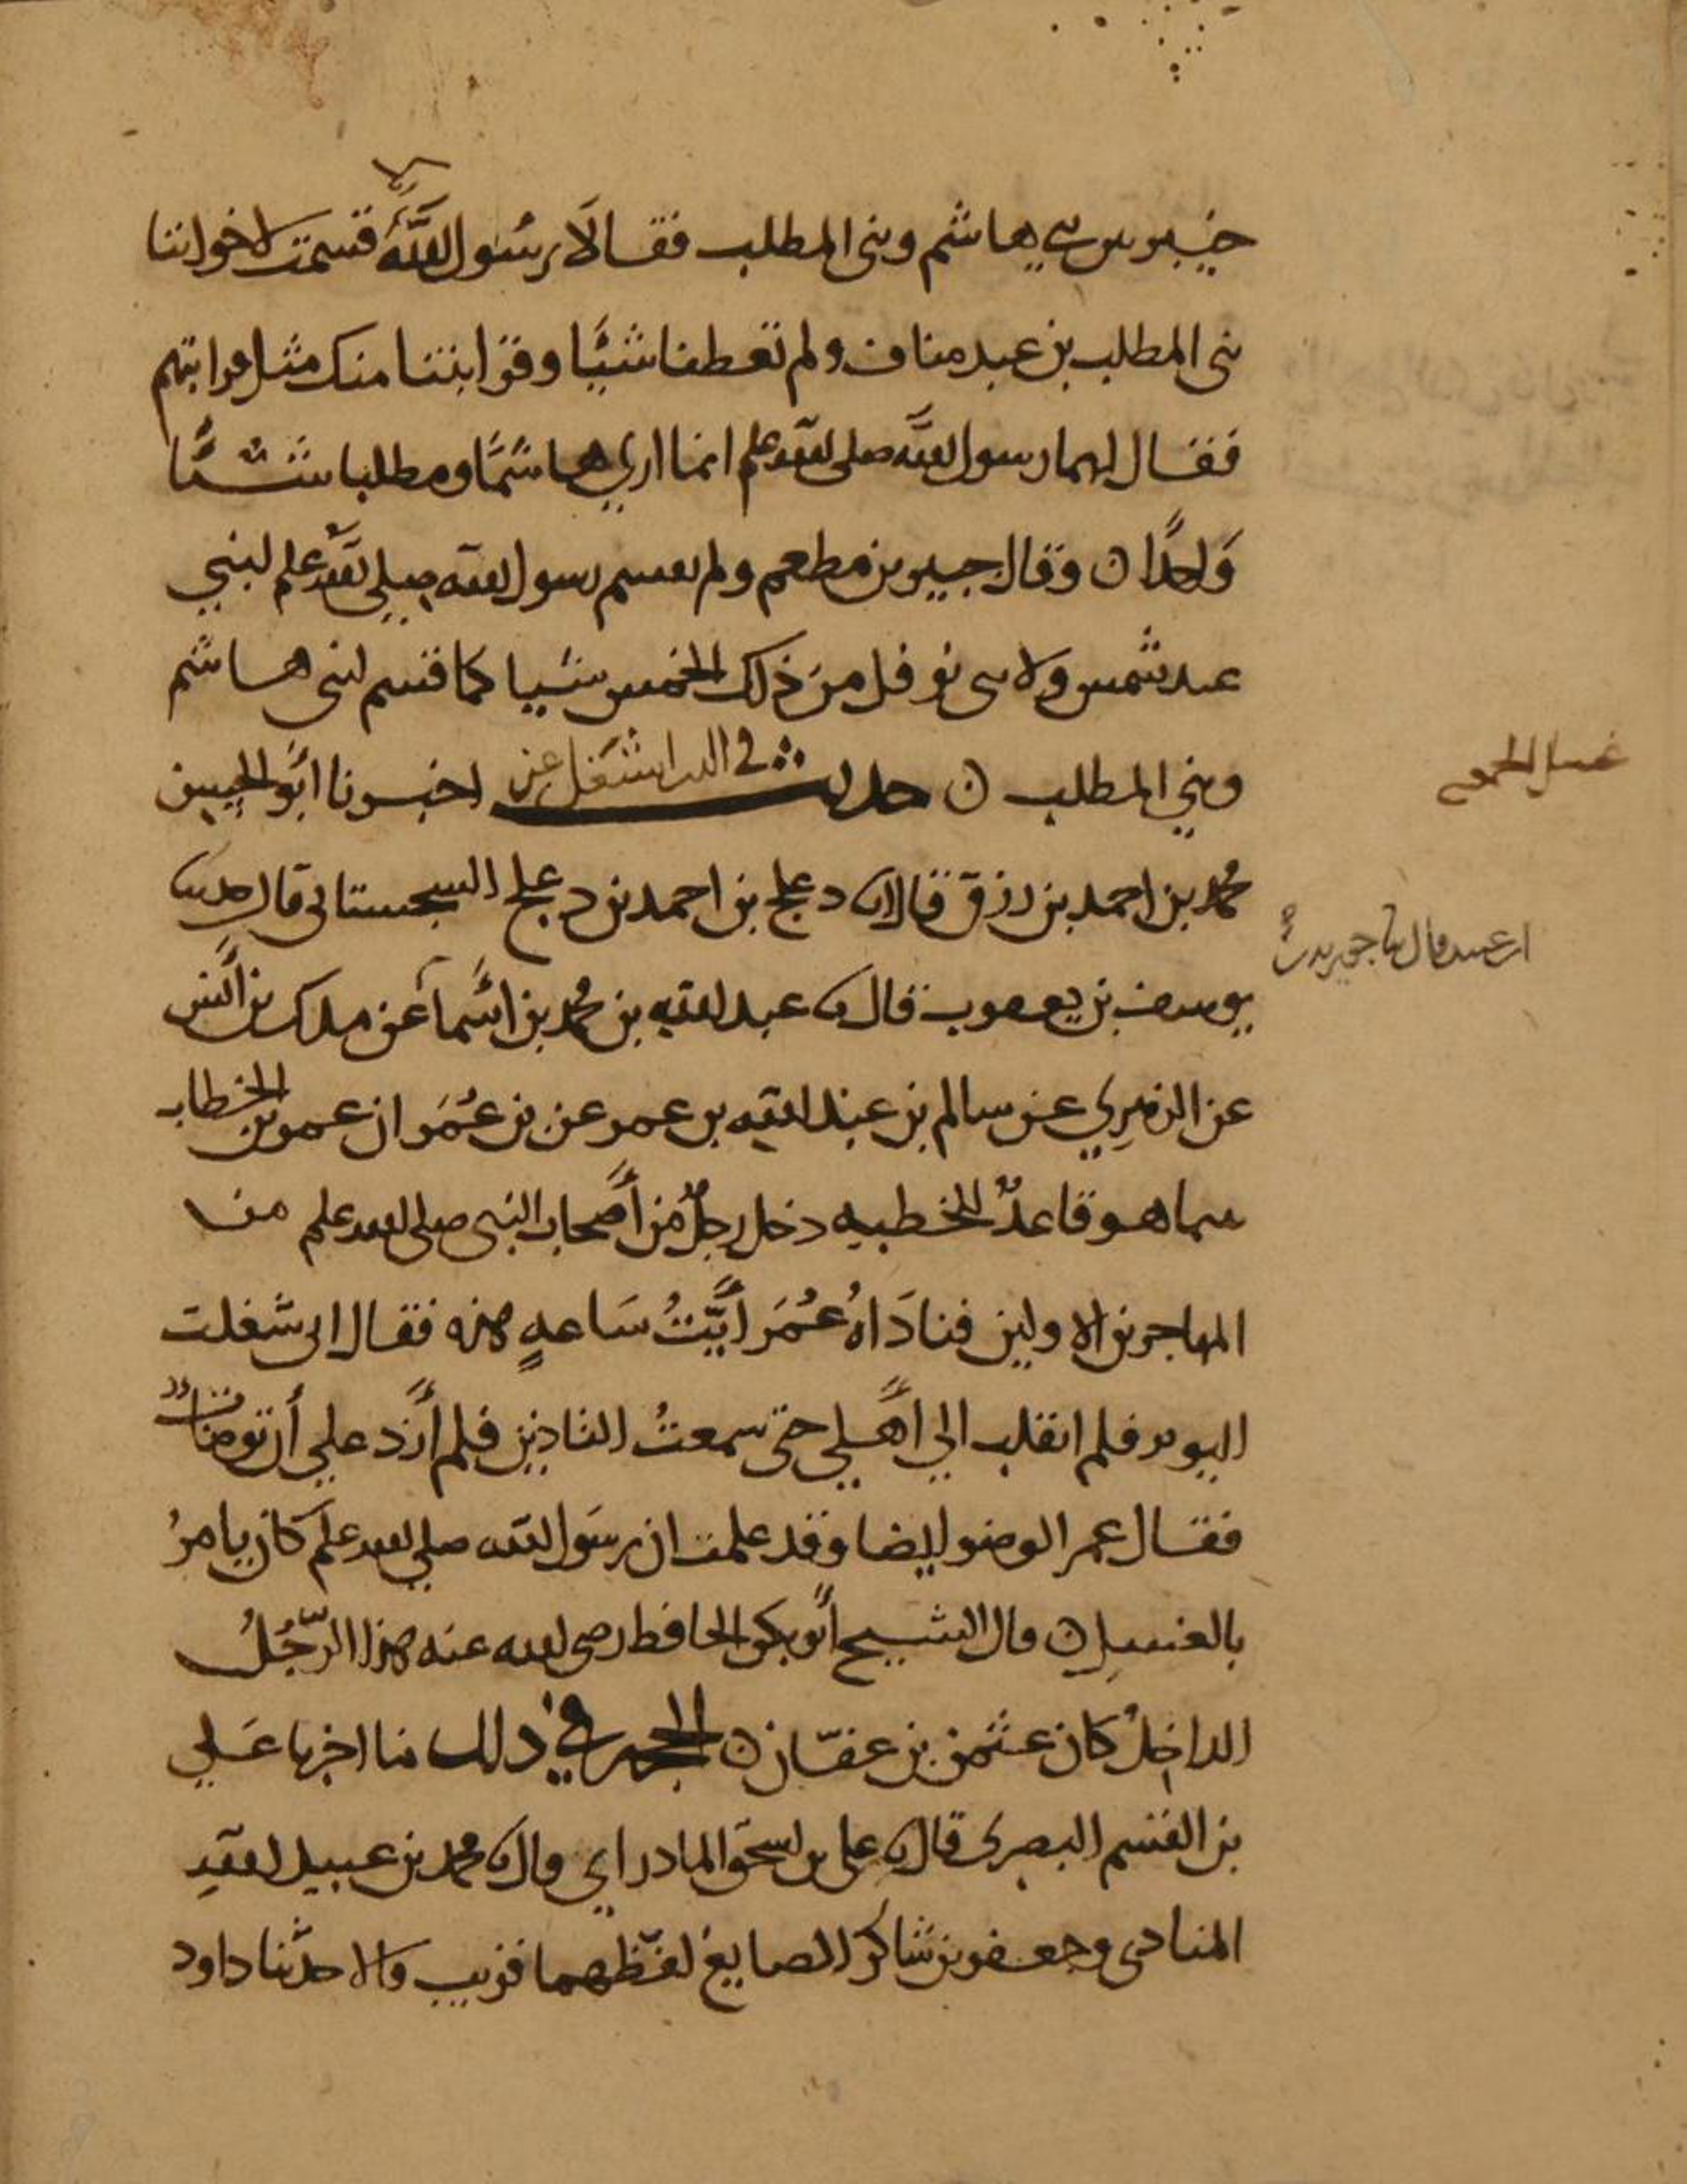 خيبر بين بني هاشم وبني المطلب فقالا يرسول الله قسمت لاخواننا
بني المطلب بن عبد مناف ولم تعطنا شيئا وقرابتنا منك مثل قرابتهم
فقال لهما رسول الله صلى الله علم انما اري هاشمًا ومطلبا شيئًا
وَاحدًا ن وقال جبير بن مطعم ولم يقسم رسول الله صلي الله علم لبني
عبد شمس ولا بني نوفل من ذلك الخمس شيا كما قسم لبني هاشم
وبني المطلب ن حديث في اخبرنا ابو الحسن
محمد بن احمد بن رزق قال انا دعلج بن احمد بن دعلج السجستاني قال حدثنا
يوسف بن يعقوب قال نا عبد الله بن محمد بن أسما عن ملك بن أنس
عن الزهري عن سالم بن عبد الله بن عمر عن بن عُمَر ان عمر بن الخطاب
بينما هو قاعدٌ للخطبه دخل رجلٌ من أصحاب النبي صلى الله علم من
المهاجرين الاولين فناداهُ عُمَر أيَّتُ سَاعهٍ هذه فقال اني شغلت
اليوم فلم انقلب الي أهلي حتى سمعتُ التاذين فلم أزد علي أن توضات
فقال عمر الوضو ايضا وقد علمت ان رسَول الله صلي الله علم كان يامرُ
بالغسل ن قال الشيخ أبو بكر الحافظ رضى الله عنه هذا الرّجُلُ
الداخلُ كان عثمن بن عفّان ن الخبر في ذلك ما اخبرنا عَلي
بن القسم البصرى قال نا على بن اسحق المادراي قال نا محمد بن عبيد الله
المنادى وجعفر بن شاكر الصايغ لفظهما قريب قالا حدثنا داود
غسل الجمعه